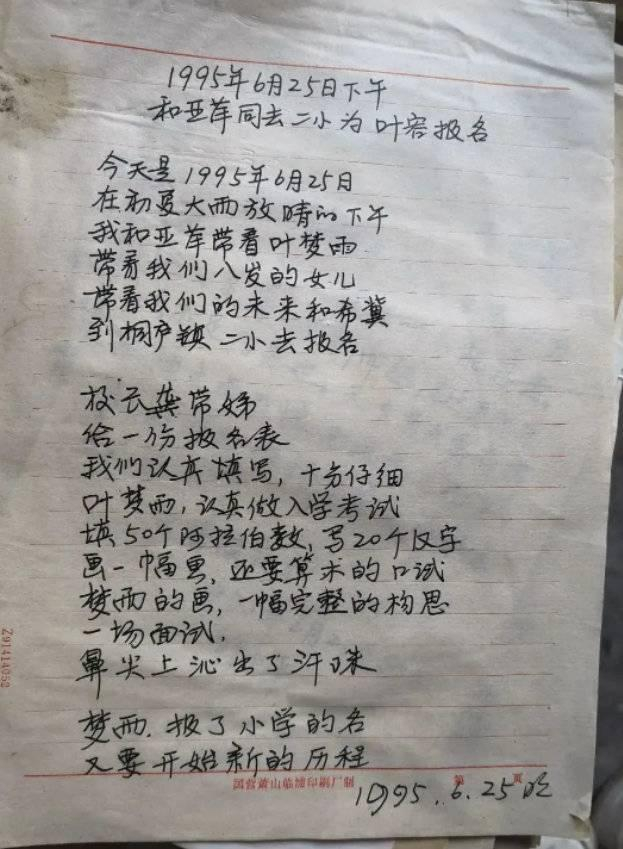 1995年6月25日下午
和亚萍同去二小为叶容报名
今天是1995年6月25日
在初夏大雨放晴的下午
我和亚萍带着叶梦雨
带着我们的女儿
带着我们的未来和希冀
到桐庐镇二小去报名
校长龚带娣
给一份报名表
我们认真填写，十分仔细
叶梦雨，认真做入学考试
填50个阿拉伯数，写20个汉字
画一幅画，还要算术的口试
梦雨的画，一幅完整的构思
一场面试，
鼻尖上沁出了汗珠
梦雨．报了小学的名
又要开始新的历程
国营萧山临浦印刷厂制 第 页
1995.6.25晚
Z91414053